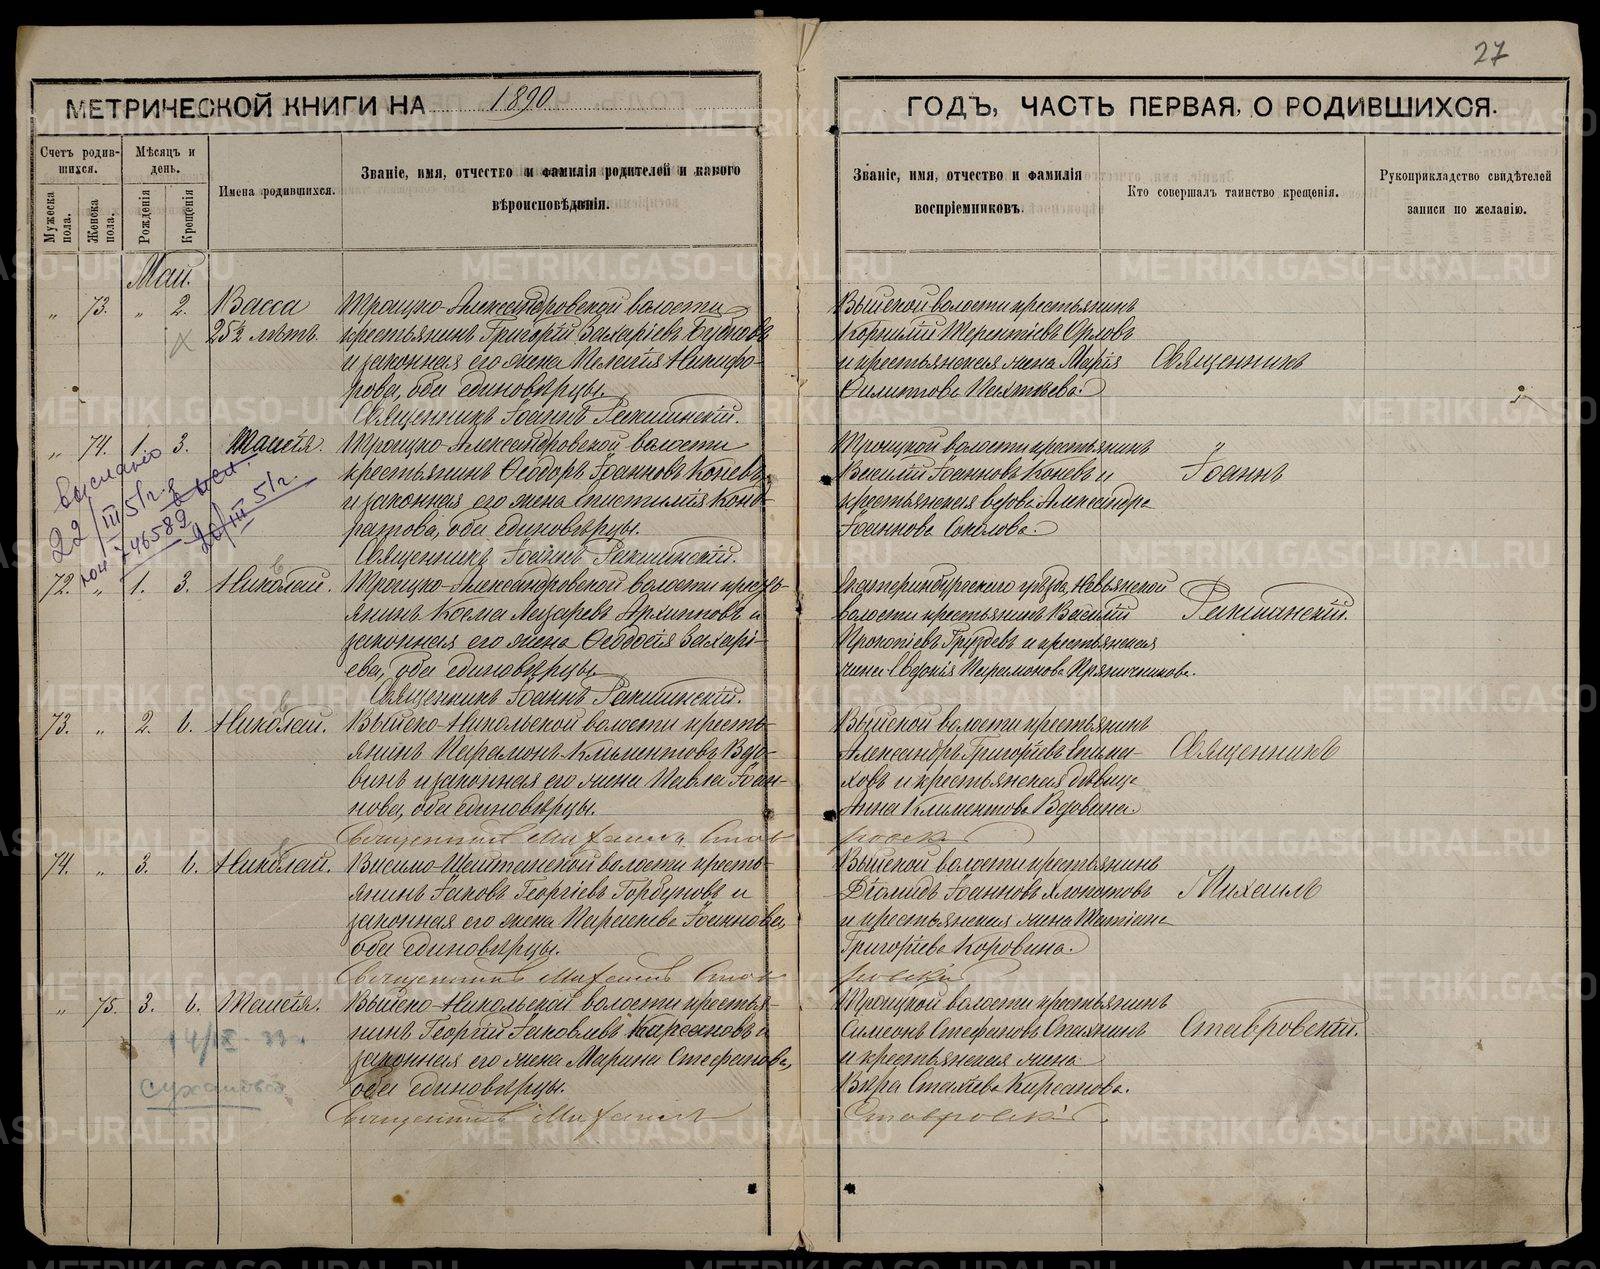 27
МЕТРИЧЕСКОЙ КНИГИ НА 1890
ГОДЪ, ЧАСТЬ ПЕРВАЯ, О РОДИВШИХСЯ.
Счетъ родив-
шихся.
Мужеска пола.
Женска пола.
Мѣсяцъ и день.
Рожденія
Крещенія
Имена родившихся.
Званіе, имя, отчество и фамилія родителей и какого
вѣроисповѣданія.
Званіе, имя, отчество и фамилія
воспріемниковъ.
Кто совершалъ таинство крещенія.
Рукоприкладство свидѣтелей
записи по желанію.
Май.
„ 73. „ 2. Васса
25½ лѣтъ.
Троицко-Александровской волости
крестьянинъ Григорій Захаріевъ
и законная его жена Пелагія Никифо-
рова, оба единовѣрцы.
Священникъ Іоаннъ
Выйской волости крестьянинъ
Корнилій Терентіевъ Орловъ
и крестьянская жена Марія
Филиппова
Священникъ
„ 74. 1. 3. Таисія.
Троицко-Александровской волости
крестьянинъ Ѳеодоръ Іоанновъ Коневъ
и законная его жена Конд-
ратова, оба единовѣрцы.
Священникъ Іоаннъ
Троицкой волости крестьянинъ
Василій Іоанновъ Коневъ и
крестьянская вдова Александра
Іоаннова Соколова.
„
Іоаннъ
выслано
22/III 51 г. в исп.
746589
26/III 51 г.
72. „ 1. 3. Николай.
Троицко-Александровской волости кресть-
янинъ Косма Лазаревъ Архиповъ и
законная его жена Ѳеодосія Захарі-
ева, оба единовѣрцы
Священникъ Іоаннъ
Екатеринбургскаго уѣзда, Невьянской
волости крестьянинъ Василій
Прокопіевъ Груздевъ и крестьянская
жена Евдокія Парамонова Пряничникова.
73. „ 2. 6. Николай.
Выйско-Никольской волости кресть-
янинъ Парамонъ Климентовъ Вдо-
винъ и законная его жена Павла Іоан-
нова, оба единовѣрцы.
Священникъ Михаилъ Став
ровскій
Выйской волости крестьянинъ
Александръ Григорьевъ
и крестьянская дѣвица
Анна Климентова Вдовина.
Священникъ
74. „ 3. 6. Николай.
Висимо-Шайтанской волости кресть-
янинъ Іаковъ Георгіевъ Горбуновъ и
законная его жена Параскева Іоаннова,
оба единовѣрцы.
Священникъ Михаилъ Став
ровскій
Выйской волости крестьянинъ
Діомидъ Іоанновъ Хлопотовъ
и крестьянская жена Татіана
Григорьева Коровина.
Михаилъ
„ 75. 3. 6. Таисія.
Выйско-Никольской волости крестья-
нинъ Георгій Іаковлевъ Кирсановъ и
законная его жена Марина Стефанова,
оба единовѣрцы.
Священникъ Михаилъ
Ставровскій
Троицкой волости крестьянинъ
Симеонъ Стефановъ
и крестьянская жена
Вѣра Кирсанова.
Ставровскій.
14/IX - 33 г.
Сухановой
METRIKI.GASO-URAL.RU